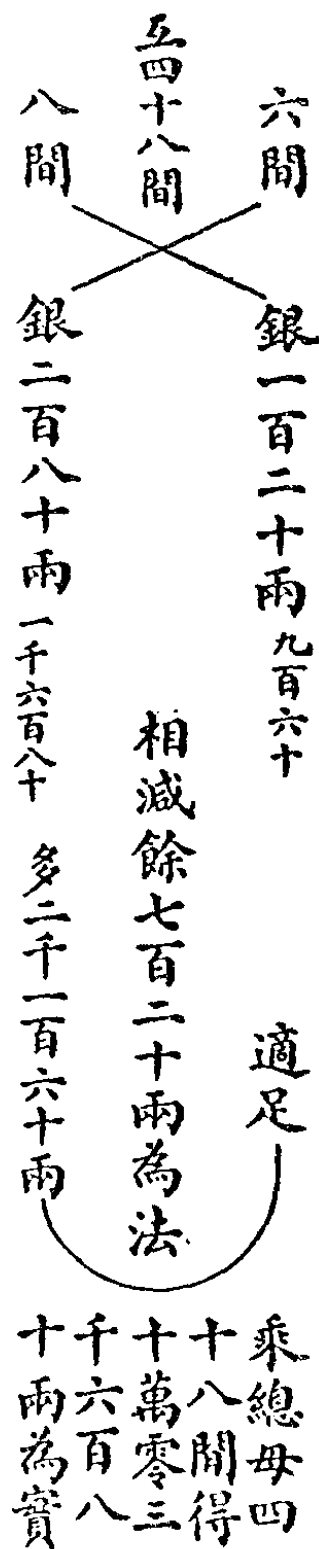 六間
銀一百二十兩
九百六十
適足
互四十八間
相減餘七百二十兩為法
八間
銀二百八十兩
一千六百八十
多二千一百六十兩
乘總母四
十八間得
十萬零三
千六百八
十兩為實